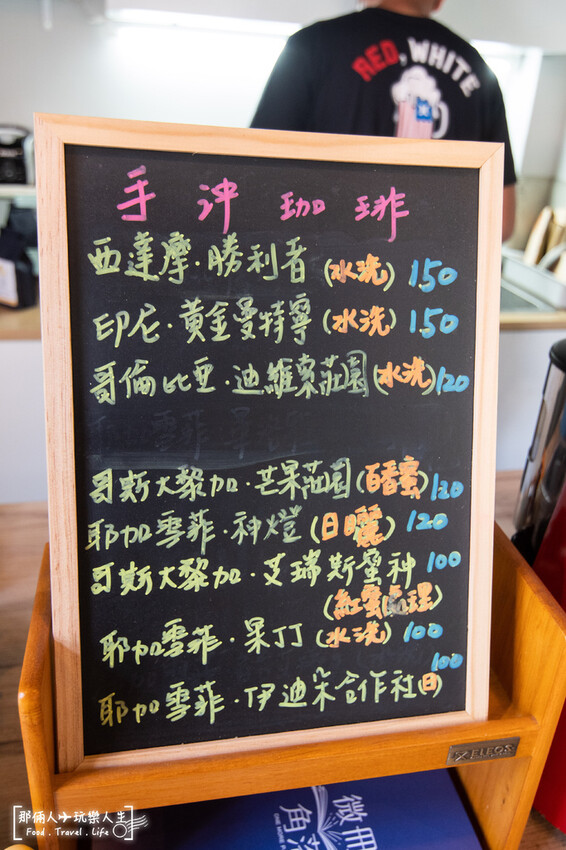 RED, WHITE
手沖珈琲
西達摩·勝利者(水洗)150
印尼·黃金曼特寧(水洗)150
哥倫比亞·迪維案莊園(水洗)120
哥斯大黎加·芒果莊園(百香蜜)120
耶加雪菲·神燈(日曬)120
哥斯大黎加·艾瑞斯蜜神 100
(紅蜜處理)
耶加雪菲·果丁(水洗)100
100
耶加雪菲·伊迪朵合作社(日)
微冊
角落
那倆人玩樂人生
Food . Travel . Life